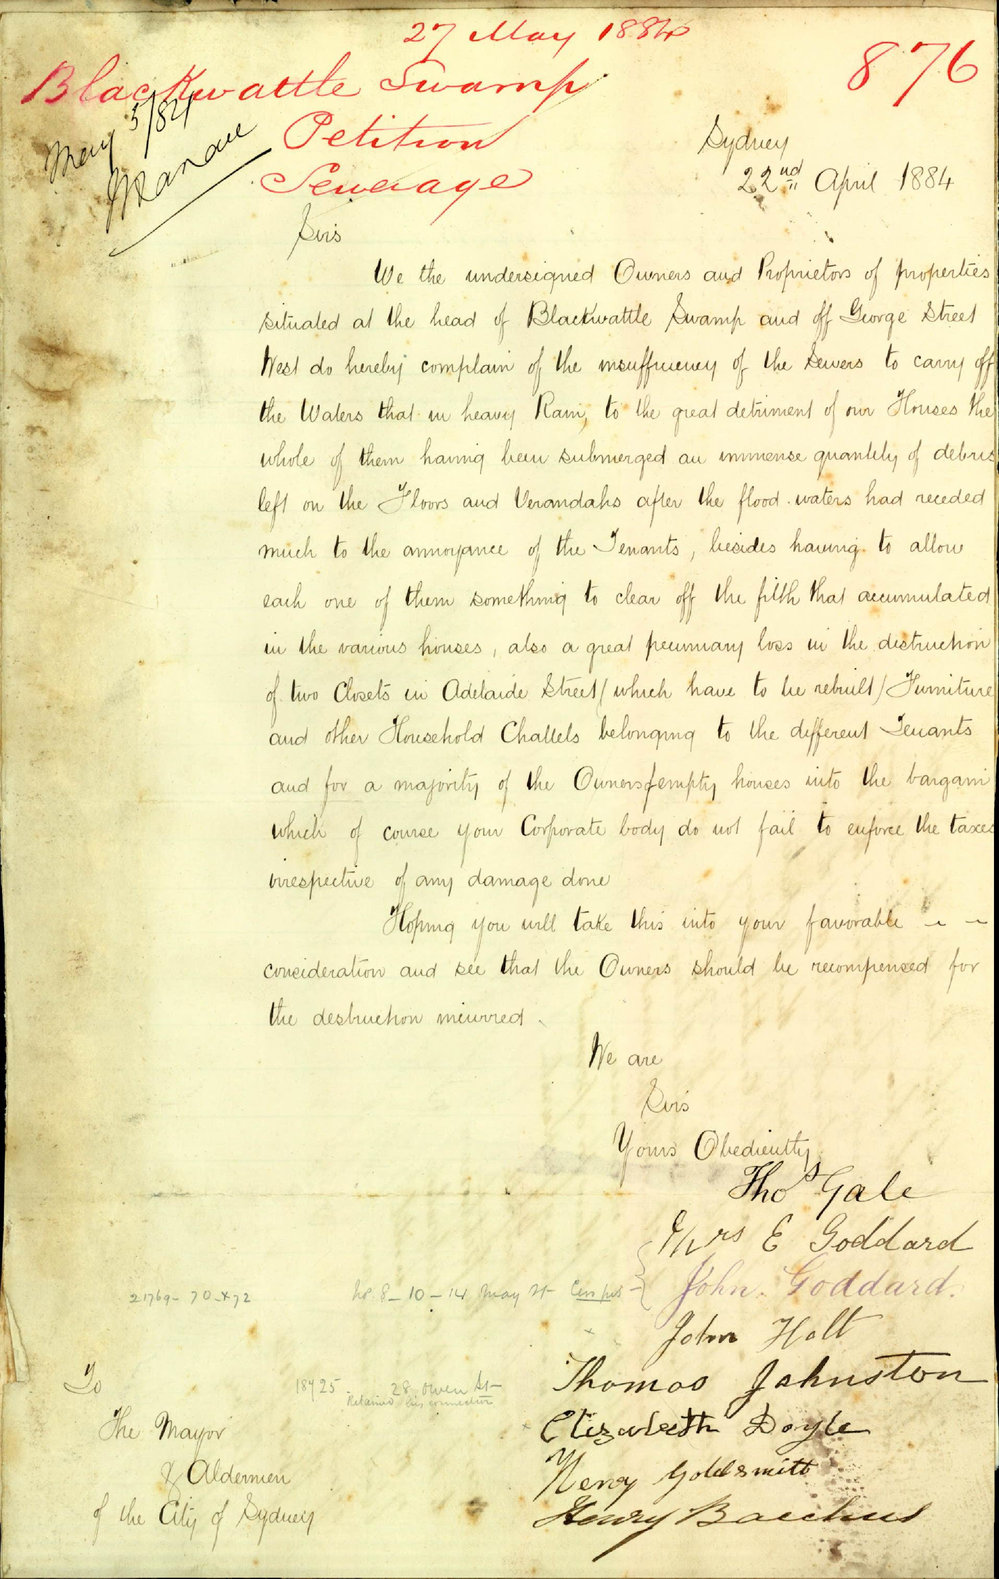 27 May 1884
876
Blackwattle Swamp
Petition
Sewerage
May 5/84
Sydney
22nd April 1884
Sirs
We the undersigned Owners and Proprietors of properties
situated at the head of Blackwattle Swamp and off George Street
West do hereby complain of the insufficiency of the Sewers to carry off
the Waters that in heavy Rain, to the great detriment of our Houses the
whole of them having been submerged an immense quantity of debris
left on the Floors and Verandahs after the flood waters had receded
much to the annoyance of the Tenants, besides having to allow
each one of them something to clear off the filth that accumulated
in the various houses, also a great pecuniary loss in the destruction
of two Closets in Adelaide Street (which have to be rebuilt) Furniture
and other Household Chattels belonging to the different Tenants
and for a majority of the Owners empty houses into the bargain
which of course your Corporate body do not fail to enforce the taxes
irrespective of any damage done
Hoping you will take this into your favorable
consideration and see that the Owners should be recompensed for
the destruction incurred.
We are
Sirs
Yours Obediently
Thos Gale
Mrs E Goddard
John Goddard.
John Holt
Thomas Johnston
Elizabeth Doyle
Henry Goldsmith
Henry Bacchus
8-10-14 May St
18425 28 Owen St
To
The Mayor
& Aldermen
of the City of Sydney